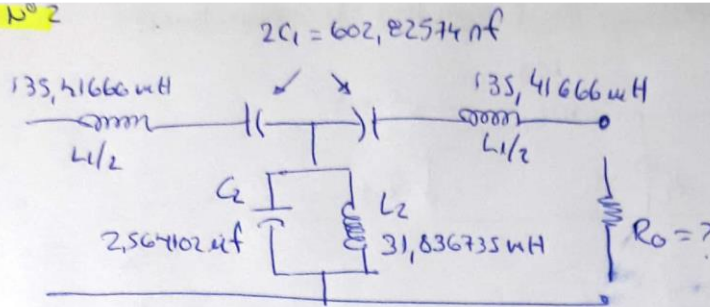 Nº 2
2C₁ = 602,82574 nf
135,41666 mH
135,41666 mH
L1/2
L1/2
C2
L2
2,564102 uf
31,836735 mH
R₀ = ?